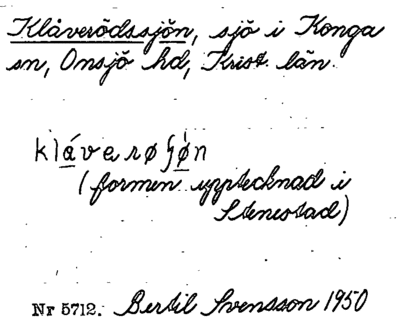 Klåverödssjön, sjö i Konga
sn, Onsjö hd, Krist. län.
klávenøʃø̀n
(formen upptecknad i
Stenestad)
Nr 5712. Bertil Svensson 1950